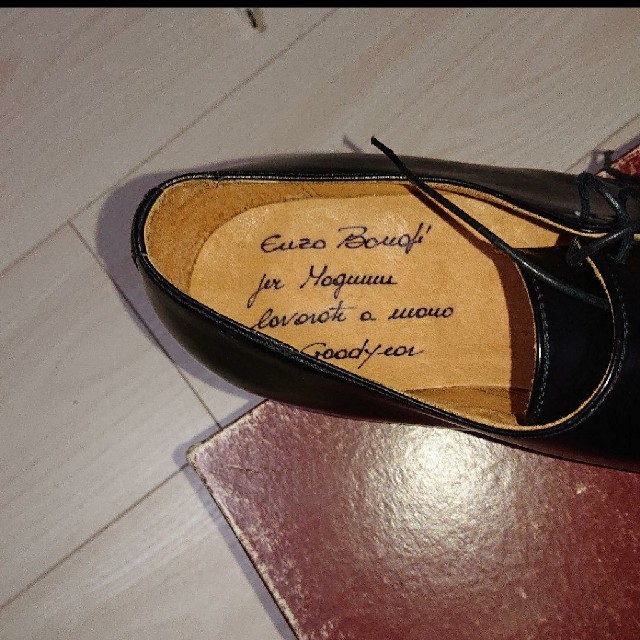 Enzo Bonafi
per Magnum
lavorati a mano
Goodyear